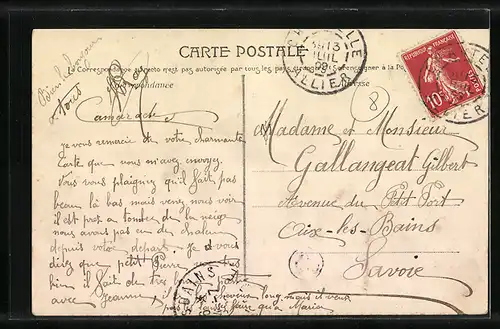 CARTE POSTALE
La Correspondance au recto n'est pas autorisée par tous les pays étrangers
Correspondance
Adresse
ALLIER
RÉPUBLIQUE FRANÇAISE
10
POSTES
8
Bien
à tous
Camarade
je vous remercie de votre charmante
Carte que vous m'avez envoyez
Vous vous plaignez qu'il fait pas
beau là bas mais venez nous voir
il est pret a tomber de la neige
nous avons pas eu de chaleur
depuis votre depart. Je vous
direz que petit Pierre
bien il fait du
avec Jeanne
cheveux long mais il veux
pas faire qu'a Marion
BAINS
Madame et Monsieur
Gallangeat Gilbert
Avenue du Petit Port
Aix-les-Bains
Savoie